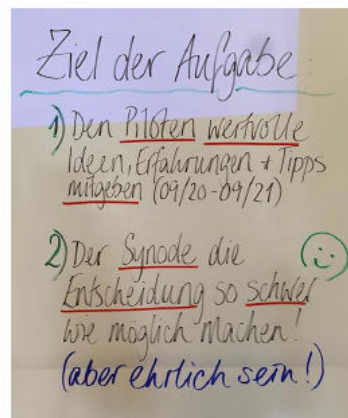 Ziel der Aufgabe:
1) Den Piloten wertvolle
Ideen, Erfahrungen + Tipps
mitgeben (09/20-09/21)
2) Der Synode die
Entscheidung so schwer
wie möglich machen!
(aber ehrlich sein!)